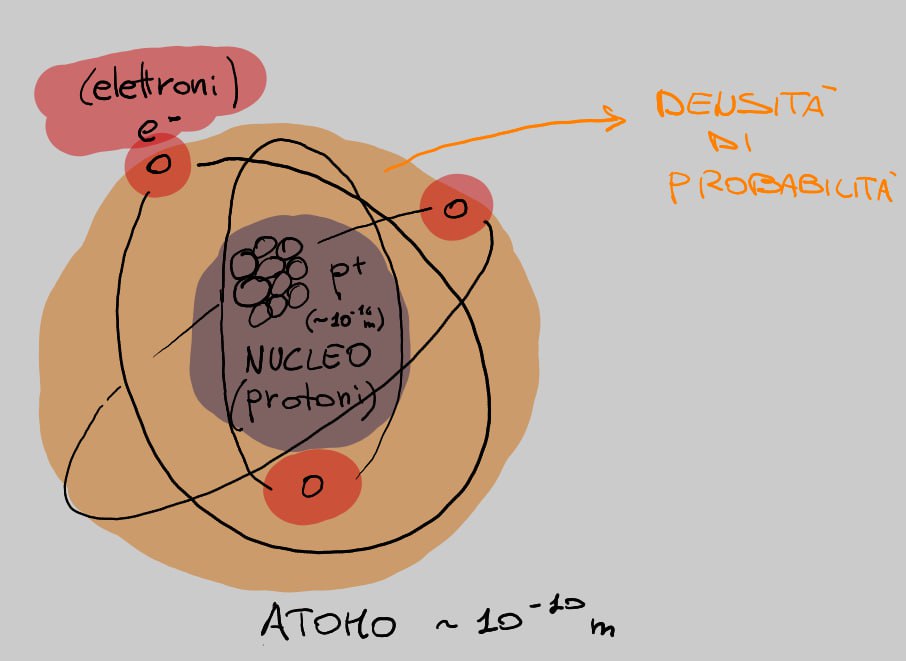 (elettroni)
e⁻
DENSITÀ
DI
PROBABILITÀ
p⁺
(~10⁻¹⁶ m)
NUCLEO
(protoni)
ATOMO ~ 10⁻¹⁰ m